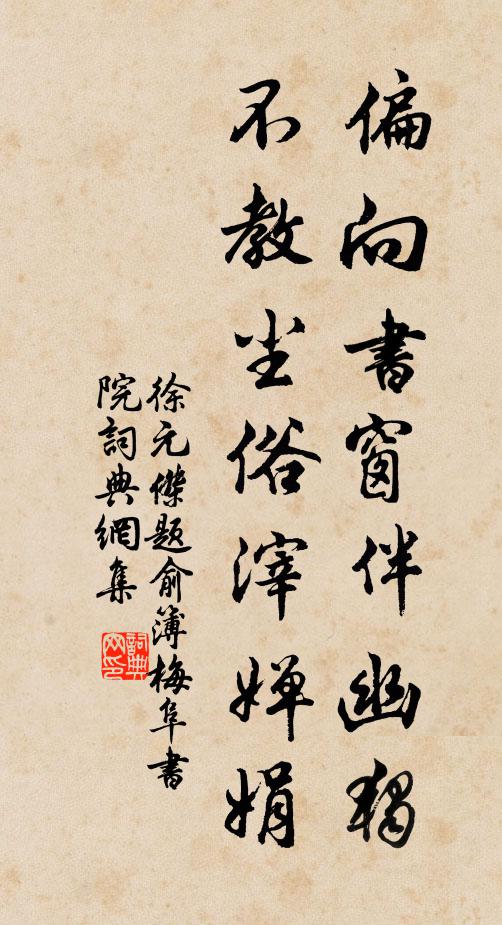 偏向書窗伴幽獨
不教尘俗滓嬋娟
徐元傑題俞簿梅阜書
院詞典網集
詞典
网印